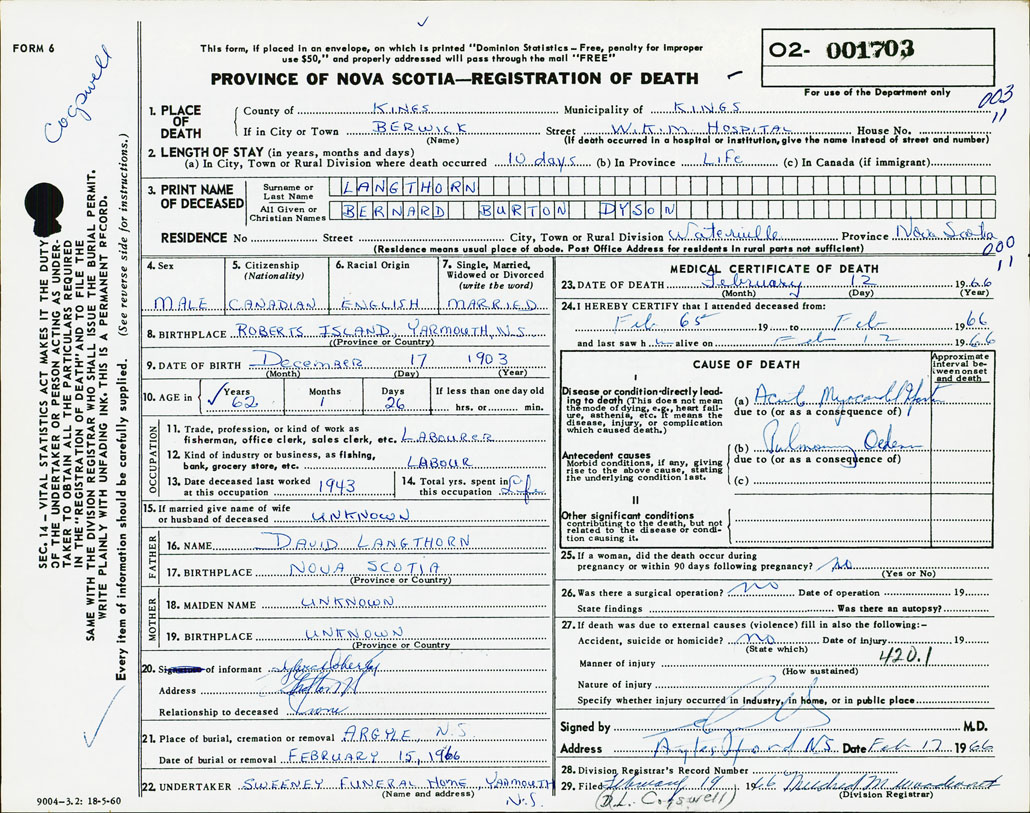 FORM 6
This form, if placed in an envelope, on which is printed "Dominion Statistics – Free, penalty for improper
use $50," and properly addressed will pass through the mail "FREE"
PROVINCE OF NOVA SCOTIA—REGISTRATION OF DEATH
02- 001703
For use of the Department only
003
11
Cogswell
SEC. 14 – VITAL STATISTICS ACT MAKES IT THE DUTY
OF THE UNDERTAKER OR PERSON ACTING AS UNDER-
TAKER TO OBTAIN ALL THE PARTICULARS REQUIRED
IN THE "REGISTRATION OF DEATH" AND TO FILE THE
SAME WITH THE DIVISION REGISTRAR WHO SHALL ISSUE THE BURIAL PERMIT.
WRITE PLAINLY WITH UNFADING INK. THIS IS A PERMANENT RECORD.
Every item of information should be carefully supplied. (See reverse side for instructions.)
1. PLACE OF DEATH County of KINGS Municipality of KINGS
If in City or Town BERWICK Street W.K.M. HOSPITAL House No.
(Name) (If death occurred in a hospital or institution, give the name instead of street and number)
2. LENGTH OF STAY (in years, months and days)
(a) In City, Town or Rural Division where death occurred 10 days (b) In Province LIFE (c) In Canada (if immigrant)
3. PRINT NAME OF DECEASED Surname or Last Name LANGTHORN
All Given or Christian Names BERNARD BURTON DYSON
RESIDENCE No Street City, Town or Rural Division Waterville Province Nova Scotia
(Residence means usual place of abode. Post Office Address for residents in rural parts not sufficient)
000
11
4. Sex MALE
5. Citizenship (Nationality) CANADIAN
6. Racial Origin ENGLISH
7. Single, Married, Widowed or Divorced (write the word) MARRIED
8. BIRTHPLACE ROBERTS ISLAND, YARMOUTH, N.S.
(Province or Country)
9. DATE OF BIRTH December 17 1903
(Month) (Day) (Year)
10. AGE in Years 62 Months 1 Days 26 If less than one day old hrs. or min.
OCCUPATION
11. Trade, profession, or kind of work as
fisherman, office clerk, sales clerk, etc. LABOURER
12. Kind of industry or business, as fishing,
bank, grocery store, etc. LABOUR
13. Date deceased last worked at this occupation 1943
14. Total yrs. spent in this occupation Life
15. If married give name of wife
or husband of deceased UNKNOWN
FATHER
16. NAME DAVID LANGTHORN
17. BIRTHPLACE NOVA SCOTIA
(Province or Country)
MOTHER
18. MAIDEN NAME UNKNOWN
19. BIRTHPLACE UNKNOWN
(Province or Country)
20. of informant
Address
Relationship to deceased
21. Place of burial, cremation or removal ARGYLE N.S.
Date of burial or removal FEBRUARY 15, 1966
22. UNDERTAKER SWEENEY FUNERAL HOME YARMOUTH
(Name and address) N.S.
9004–3.2: 18-5-60
MEDICAL CERTIFICATE OF DEATH
23. DATE OF DEATH February 12 1966
(Month) (Day) (Year)
24. I HEREBY CERTIFY that I attended deceased from:
Feb 65 19 to Feb 1966
and last saw h alive on Feb 12 1966
CAUSE OF DEATH
Approximate interval between onset and death
I
Disease or condition directly leading to death (This does not mean the mode of dying, e.g., heart failure, asthenia, etc. It means the disease, injury, or complication which caused death.)
(a) Acute
due to (or as a consequence of)
Antecedent causes
Morbid conditions, if any, giving rise to the above cause, stating the underlying condition last.
(b) Pulmonary Oedema
due to (or as a consequence of)
(c)
II
Other significant conditions
contributing to the death, but not related to the disease or condition causing it.
25. If a woman, did the death occur during
pregnancy or within 90 days following pregnancy? no
(Yes or No)
26. Was there a surgical operation? no Date of operation 19
State findings Was there an autopsy?
27. If death was due to external causes (violence) fill in also the following:–
Accident, suicide or homicide? no Date of injury 19
(State which)
420.1
Manner of injury
(How sustained)
Nature of injury
Specify whether injury occurred in industry, in home, or in public place
Signed by M.D.
Address N.S. Date Feb 17 1966
28. Division Registrar's Record Number
29. Filed February 19 1966 Mildred M. Woodworth
(D.L. Cogswell) (Division Registrar)